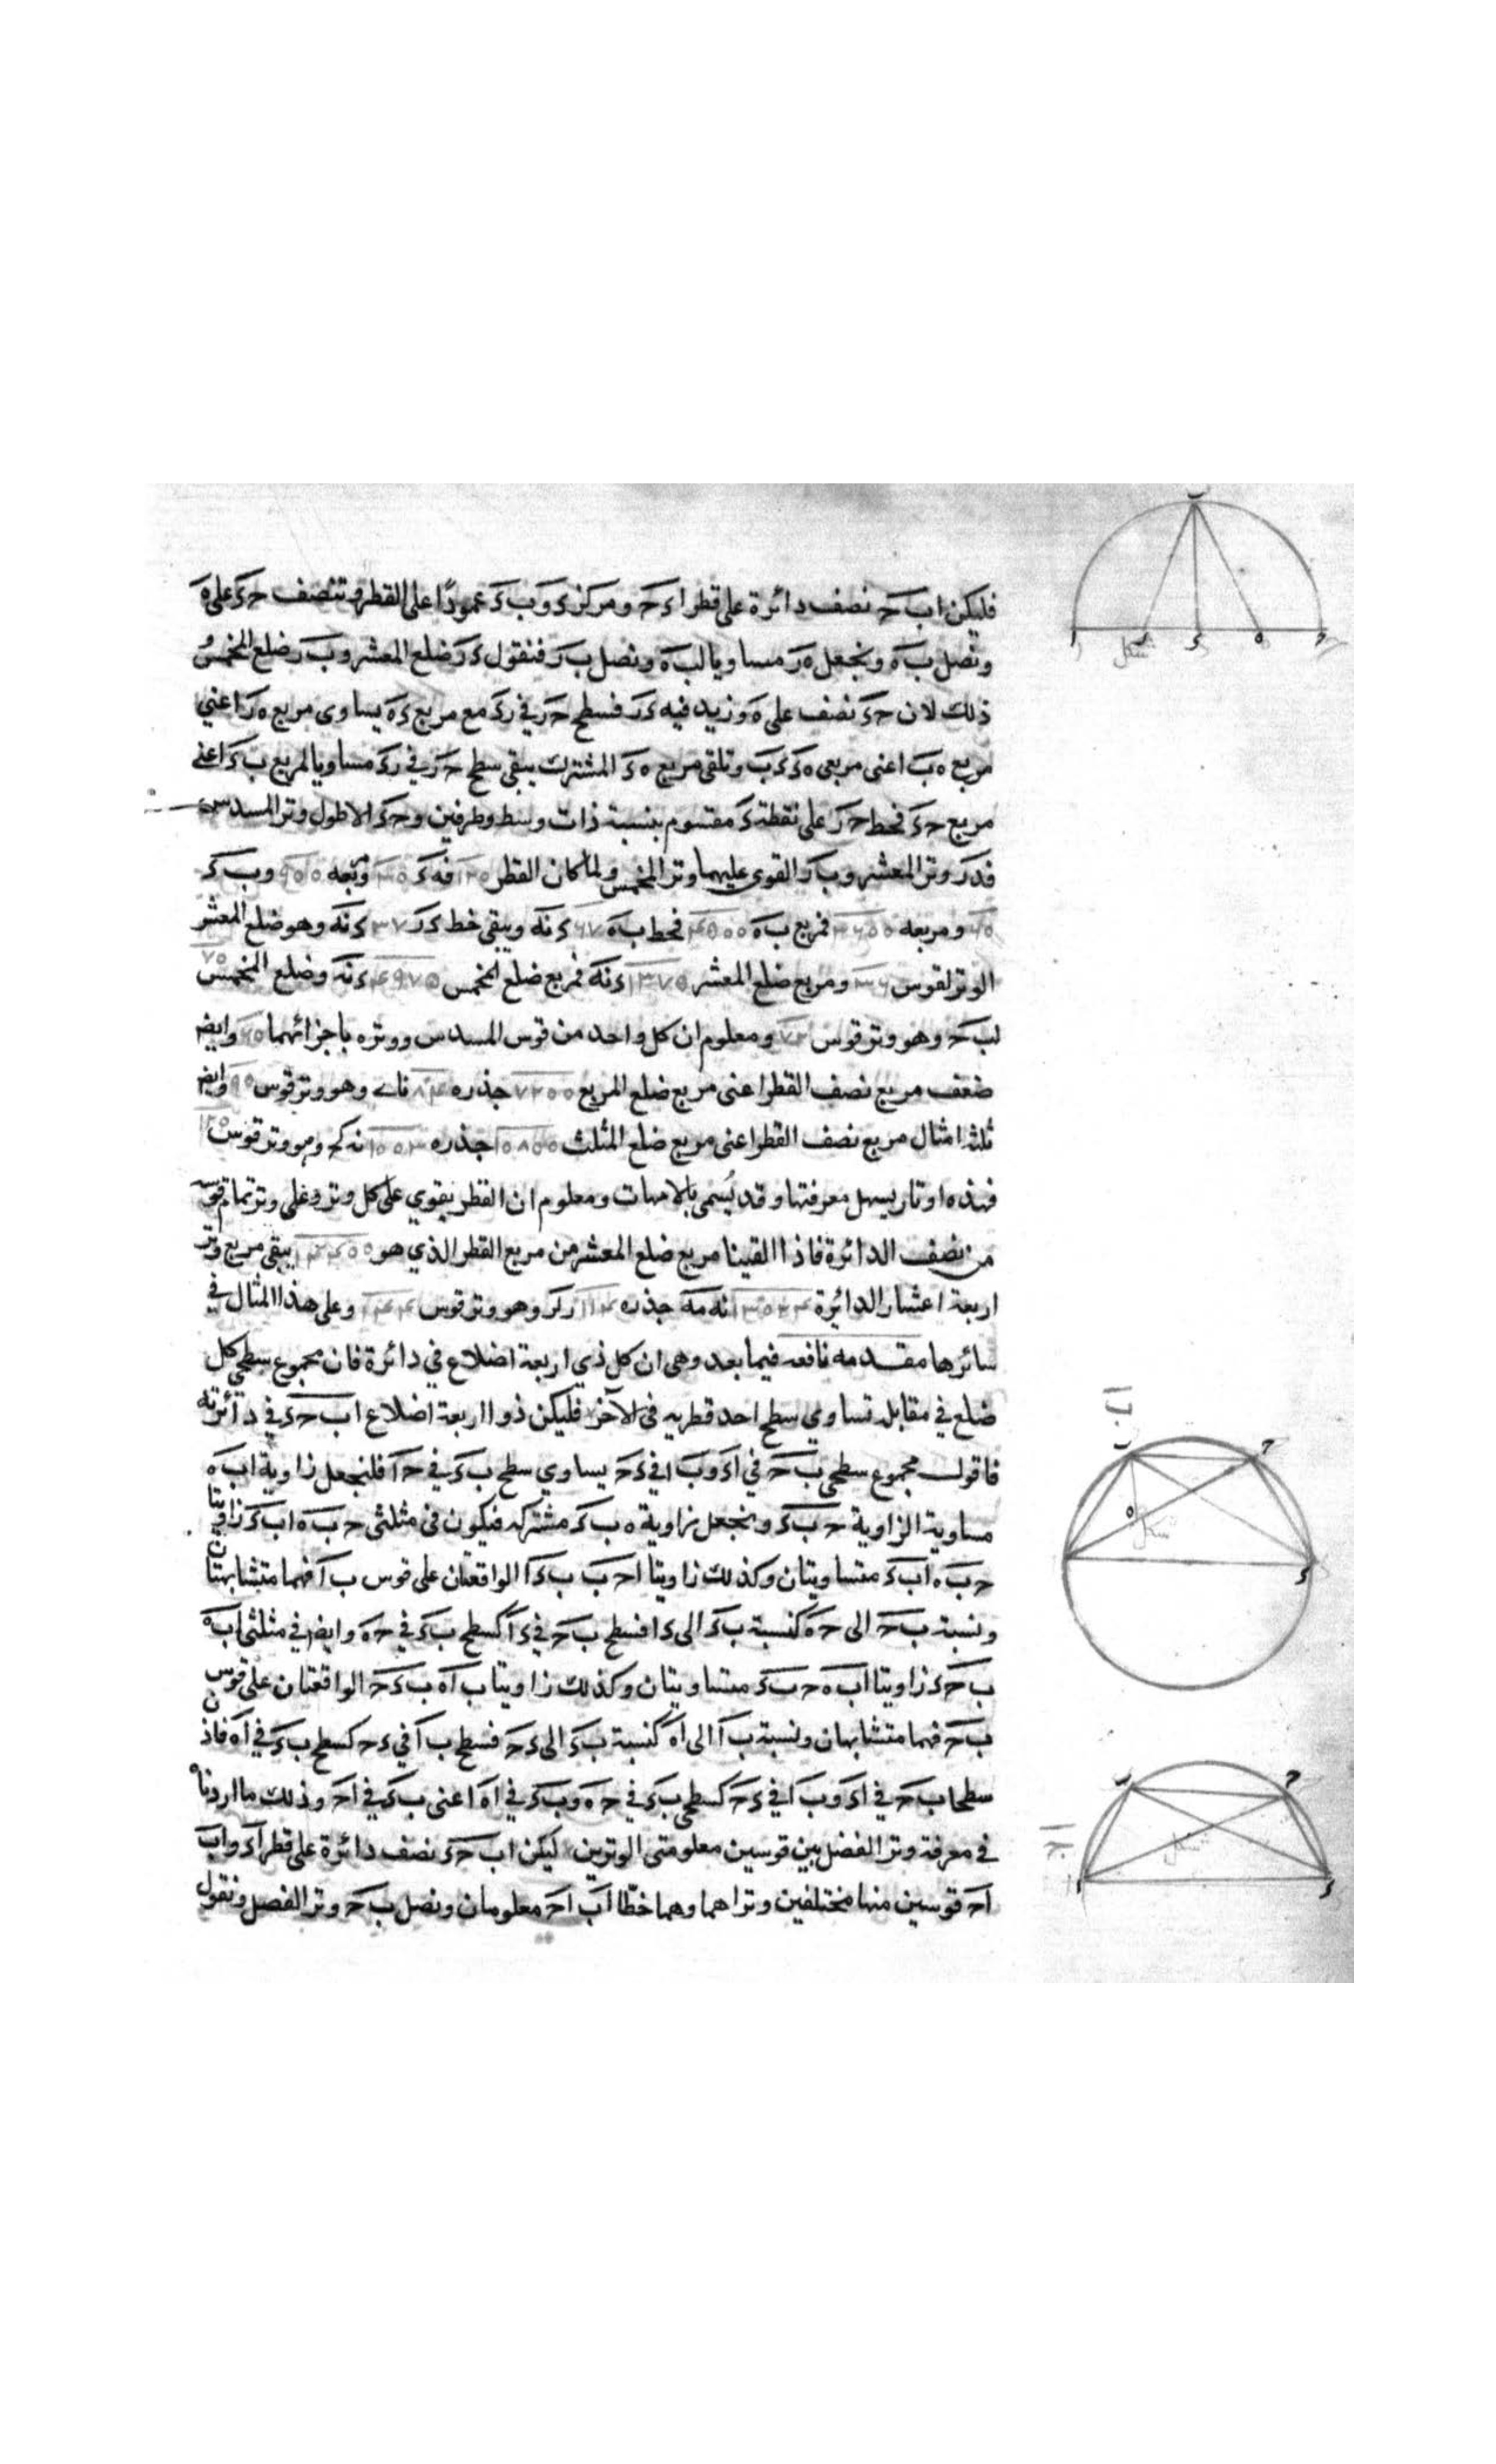 فليكن اب حَ نصف دائرة على قطر اءحَ ومركز ءَ وبَ ءَ عمودًا على القطر وتنصف حءَ على هَ
ونصل بَ هَ ونجعل هرَ مساويا لب هَ ونصل بَ رَ فنقول ءرَ ضلع المعشر وبَ رَ ضلع المخمس
ذلك لان حءَ نصف على هَ وزيد فيه ءرَ فسطح حرَ في رءَ مع مربع ءهَ يساوى مربع هرَ اعني
مربع هبَ اعنى مربعى هءَ ءبَ وتلقى مربع هءَ المشترك يبقى سطح حرَ في رءَ مساويا لمربع بءَ اعنى
مربع حءَ فخط حرَ على نقطة ءَ مقسوم بنسبة ذات وسط وطرفين وحءَ الاطول وتر المسدس
فدرَ وتر المعشر وبرَ القوى عليهما وتر المخمس ولما كان القطر ١٢٠ فهءَ ٣٠ ومربعه ٩٠٠ وبءَ
٦٠ ومربعه ٣٦٠٠ فمربع بهَ ٤٥٠٠ فخط بهَ ٦٧ ءنهَ ويبقى خط ءرَ ٣٧ ءنهَ وهو ضلع المعشر
الوتر لقوس ٣٦ ومربع ضلع المعشر ١٣٧٥ ءنهَ فمربع ضلع المخمس ٤٩٧٥ ءنهَ وضلع المخمس ٧٠
لب حَ وهو وتر قوس ٧٢ ومعلوم ان كل واحد من قوس المسدس ووتره باجزائهما ٦٠ وايض
ضعف مربع نصف القطر اعنى مربع ضلع المربع ٧٢٠٠ جذره ٨٤ ناے وهو وتر قوس ٩٠ وايض
ثلثه امثال مربع نصف القطر اعنى مربع ضلع المثلث ١٠٨٠٠ جذره ١٠٣ نه كح وهو وتر قوس ١٢٠
فهذه اوتار يسهل معرفتها وقد يُسمى بالامهات ومعلوم ان القطر يقوي على كل وتر وعلى وتر تمام قوسه
من نصف الدائرة فاذا القينا مربع ضلع المعشر من مربع القطر الذي هو ١٤٤٠٠ يبقى مربع وتر
اربعة اعشار الدائرة ١٣٠٢٤ نه مه جذره ١١٤ ز لز وهو وتر قوس ١٤٤ وعلى هذا المثال في
سائرها مقدمه نافعه فيما بعد وهى ان كل ذي اربعة اضلاع في دائرة فان مجموع سطحي كل
ضلع في مقابله تساوي سطح احد قطريه فى الآخر فليكن ذو اربعة اضلاع اب حءَ في دائرته
فاقول مجموع سطحى بَ حَ في اءَ وبَ ا في ءحَ يساوي سطح بءَ في حَ ا فلنجعل زاوية اب هَ
مساوية لزاوية حَ بَ ءَ ونجعل زاوية هَ ب ءَ مشتركه فيكون فى مثلثى حَ بَ ه اب ءَ زاويتا
حَ بَ ه ابَ ءَ متساويتان وكذلك زاويتا احَ بَ بَ ءَ ا الواقعتان على قوس ب اَ فهما متشابهتان
ونسبة بَ حَ الى حَ هَ كنسبة بءَ الى ءا فسطح بَ حَ في ءاَ كسطح بَ ءَ في حَ هَ وايض في مثلثى اب هَ
بَ حَ ءَ زاويتا ابَ هَ حَ بَ ءَ متساويتان وكذلك زاويتا ب اَ هَ بَ ءَ حَ الواقعتان على قوس
بَ حَ فهما متشابهان ونسبة بَ اَ الى اهَ كنسبة بَ ءَ الى ءحَ فسطح ب اَ في ءحَ كسطح ب ءَ في اهَ فاذن
سطحا ب حَ في اءَ وبَ ا في ءحَ كسطحى بءَ في حَ هَ وبَ ءَ في اهَ اعنى بءَ في احَ وذلك ما اردناه
في معرفة وتر الفضل بين قوسين معلومتى الوترين ليكن اب حءَ نصف دائرة على قطر اءَ وابَ
احَ قوسين منها مختلفين وتراهما وهما خطّا ابَ احَ معلومان ونصل ب حَ وتر الفضل ونقول